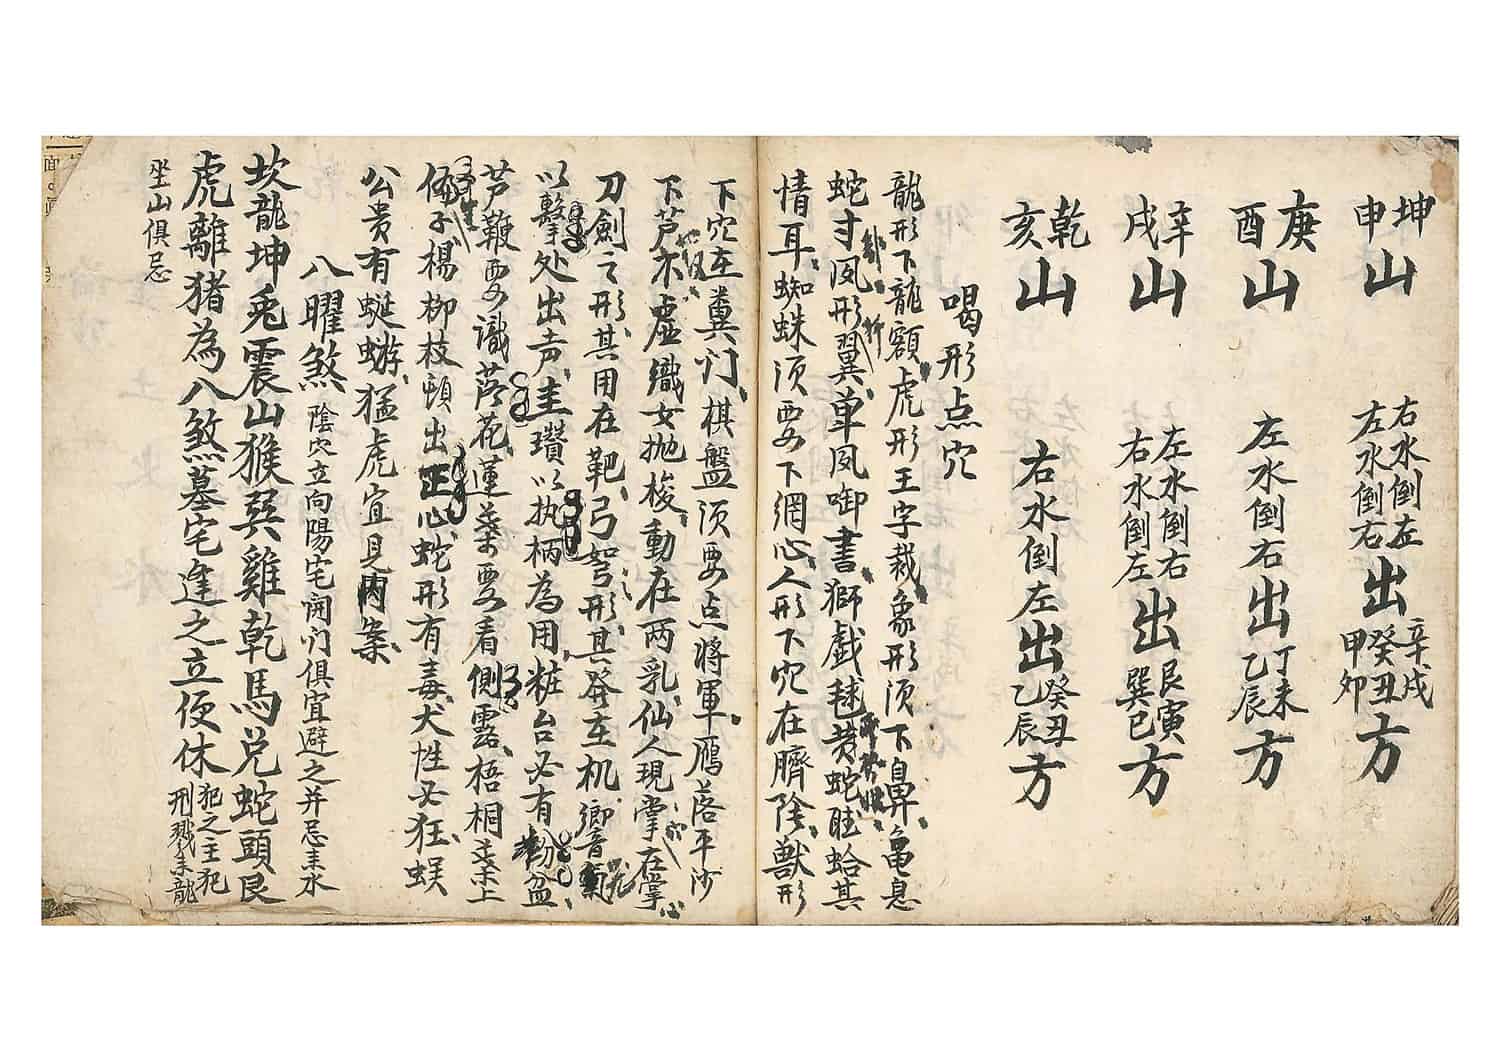 坤申山 右水倒左 左水倒右 出 辛戌 癸丑 甲卯 方
庚酉山 左水倒右出 丁未 乙辰 方
辛戌山 左水倒右 右水倒左 出 艮寅 巽巳 方
乾亥山 右水倒左出 癸丑 乙辰 方
喝形点穴
龍形下龍額虎形王字裁象形須下鼻龜息
蛇寸鳳形翼单鳳啣書獅戲毬黄蛇旺蛤其
情耳蜘蛛須要下網心人形下穴在臍陰獸形
下穴在糞门棋盤須要点將軍鴈落平沙
下芦不虚織女抛梭動在两乳仙人現掌在掌心
刀劍之形其用在靶弓弩形其發在机
以擊处出声圭瓚以执柄為用粧台必有粉盆
芦鞭要識落花蓮葉要看側露梧桐葉上
偃子楊柳枝頭出正心蛇形有毒犬性必狂蜈
公贵有蜒蝣猛虎宜見肉案
八曜煞 陰穴立向陽宅開门俱宜避之并忌耒水
坎龍坤兎震山猴巽雞乾馬兑蛇頭艮
虎離猪為八煞墓宅逢之立便休 犯之主犯刑戮耒龍
坐山俱忌